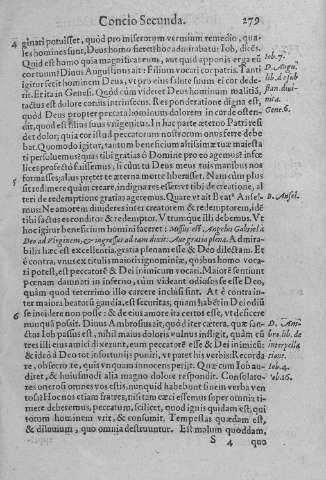 Concio Secunda. 279
4 ginari potuisset, quòd pro miserorum vermium remedio, qua-
les homines sunt, Deus homo fieret? hoc admirabatur Iob, dicēs.
Quid est homo quia magnificas eum, aut quid apponis erga eū
cor tuum? Diuus Augustinus ait: Filium vocari cor patris. Tanti
igitur fecit hominem Deus, vt pro eius salute suum ei cor dede-
rit. Et ita in Genesi. Quòd cùm videret Deus hominum malitiā,
tactus est dolore cordis intrinsecus. Res ponderatione digna est,
quòd Deus propter peccata hominum dolorem in corde osten-
dit, quod est filius suus vnigenitus. In hac parte æterno Patri se-
det dolor; quia cor istud peccatorum nostrorum onus ferre debe-
bat. Quomodo igitur, tantum beneficium altissimæ tuæ maiesta
ti persoluemus? quas tibi gratias ô Domine pro eo agemus? infœ
lices profectò fuissemus, si cùm tu Deus meus tuis manibus nos
formasses, alius præter te æterna morte liberasset. Nam cùm plus
sit redimere quàm creare, indigna res esset vt tibi de creatione, al
teri de redemptione gratias ageremus. Quare vt ait Beat⁹ Ansel-
mus: Ne amorem diuideres inter creatorem & redemptorem, idē
tibi factus est conditor & redemptor. Vtrumque illi debemus. Vt
hoc igitur beneficium homini faceret: Missus est Angelus Gabriel à
Deo ad Virginem, & ingressus ad eam dixit: Aue gratia plena. Admira-
bilis hæc est excellentia, gratia plenam esse & Deo dilectam. Et
è contra, vnusex titulis maioris ignominiæ, quibus homo vo-
cari potest, est peccatorē & Dei inimicum vocari. Maiorē sentiunt
pœnam damnati in inferno, cùm videant odiosos se esse Deo,
quàm quod teterrimo illo carcere inclusi sint. At è contra in-
ter maiora beatorū gaudia, est securitas; quam habēt in Dei odiū
6 se incidere non posse: & de eius amore ita certos esse, vt deficere
nunquā possit. Diuus Ambrosius ait, quòd inter cætera, quæ sanc-
tus Iob passus est, nihil maius doloris vulnus inflixit, quàm cū
tres illi eius amici dixerunt, eum peccatorē esse & Dei inimicū;
& ideò à Deo tot infortunijs puniri, vt patet his verbis: Recorda
re, obsecro te, quis vnquam innocens perijt. Quæ cum Iob au-
diret, & huiusmodi alia magno dolore respondit. Consolato-
res onerosi omnes vos estis, nunquid habebunt finem verba ven
tosa? Hoc nos etiam fratres, si itam cæci essemus super omnia ti-
mere deberemus, peccatum, scilicet, quod ignis quidam est, qui
totum hominem vrit, & consumit. Tempestas quædam est,
& diluuium, quo omnia destruuntur. Est malum quoddam,
S 4 quo
Iob. 7.
D. Augu.
Gene. 6.
B. Ansel.
D. Am
bro. lib. de
interpella
tione.
Iob. 4.
ab. 16.